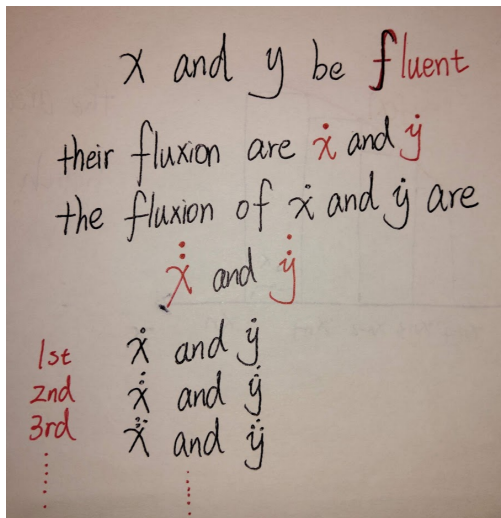 x and y be fluent
their fluxion are ẋ and ẏ
the fluxion of ẋ and ẏ are
ẍ and ÿ
1st ẋ and ẏ
2nd ẍ and ÿ
3rd x⃛ and y⃛